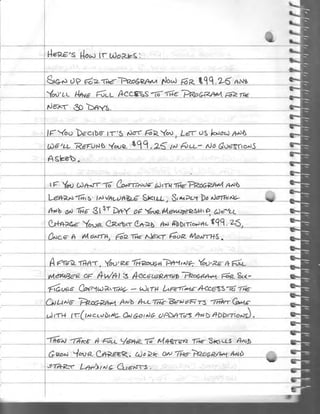 HERE'S HOW IT WORKS:
SIGN UP FOR THE PROGRAM NOW FOR $99.25 AND
YOU'LL HAVE FULL ACCESS TO THE PROGRAM FOR THE
NEXT 30 DAYS.
IF YOU DECIDE IT'S NOT FOR YOU, LET US KNOW AND
WE'LL REFUND YOUR $99.25 IN FULL - NO QUESTIONS
ASKED.
IF YOU WANT TO CONTINUE WITH THE PROGRAM AND
LEARN THIS INVALUABLE SKILL, SIMPLY DO NOTHING
AND ON THE 31ST DAY OF YOUR MEMBERSHIP, WE'LL
CHARGE YOUR CREDIT CARD AN ADDITIONAL $99.25,
ONCE A MONTH, FOR THE NEXT FOUR MONTHS.
AFTER THAT, YOU'RE THROUGH PAYING. YOU'RE A FULL
MEMBER OF AWAI'S ACCELERATED PROGRAM FOR SIX-
FIGURE COPYWRITING - WITH LIFETIME ACCESS TO THE
ONLINE PROGRAM AND ALL THE BENEFITS THAT COME
WITH IT (INCLUDING ONGOING UPDATES AND ADDITIONS).
THEN TAKE A FULL YEAR TO MASTER THE SKILLS AND
GROW YOUR CAREER. WORK ON THE PROGRAM AND
START LANDING CLIENTS.